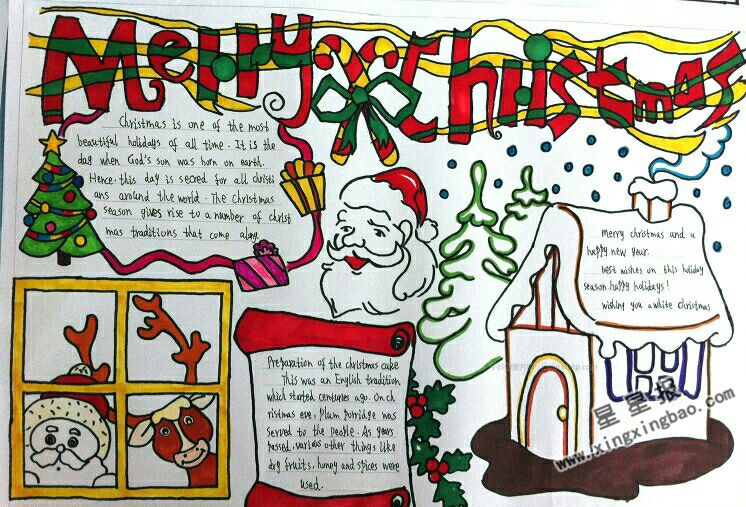 Merry Christmas
Christmas is one of the most
beautiful holidays of all time. It is the
day when God's son was born on earth.
Hence, this day is secred for all christi
ans around the world. The christmas
season gives rise to a number of christ
mas traditions that come along
merry christmas and a
happy new year.
best wishes on this holiday
season.happy holidays!
wishing you a white christmas
Preparation of the christmas cake
This was an English tradition
which started centuries ago. On ch
ristmas eve, plum porridge was
served to the people. As years
passed, various other things like
dry fruits, honey and spices were
used.
星星报
www.xingxingbao.com